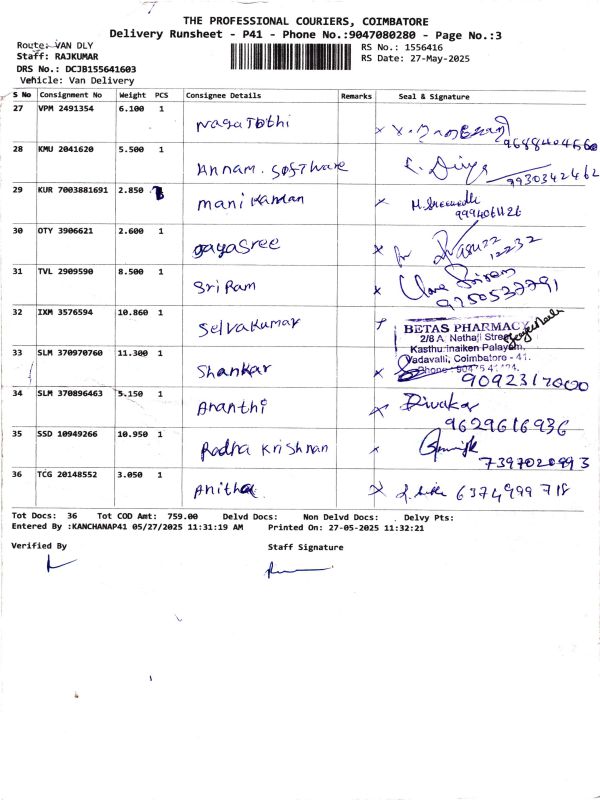 THE PROFESSIONAL COURIERS, COIMBATORE
Delivery Runsheet - P41 - Phone No.:9047080280 - Page No.:3
Route: VAN DLY
RS No.: 1556416
Staff: RAJKUMAR
RS Date: 27-May-2025
DRS No.: DCJB155641603
Vehicle: Van Delivery
S No Consignment No Weight PCS Consignee Details Remarks Seal & Signature
27 VPM 2491354 6.100 1
Nagajothi
9688404560
28 KMU 2041620 5.500 1
Annam. Software
9930342462
29 KUR 7003881691 2.850
Manikandan
30 OTY 3906621 2.600 1
Jayasree
31 TVL 2909590 8.500 1
Sriram
9750537791
32 IXM 3576594 10.860 1
Selvakumar
BETAS PHARMACY
2/8 A Nethaji Street,
Kasthu inaiken Palayam,
Vadavalli, Coimbatore - 41.
33 SLM 370970760 11.300 1
Shankar
9092317000
34 SLM 370896463 5.150 1
Ananthi
Diwakar
9629616936
35 SSD 10949266 10.950 1
Radha Krishnan
7397020993
36 TCG 20148552 3.050 1
Anitha
6374999718
Tot Docs: 36 Tot COD Amt: 759.00 Delvd Docs: Non Delvd Docs: Delvy Pts:
Entered By :KANCHANAP41 05/27/2025 11:31:19 AM Printed On: 27-05-2025 11:32:21
Verified By
Staff Signature